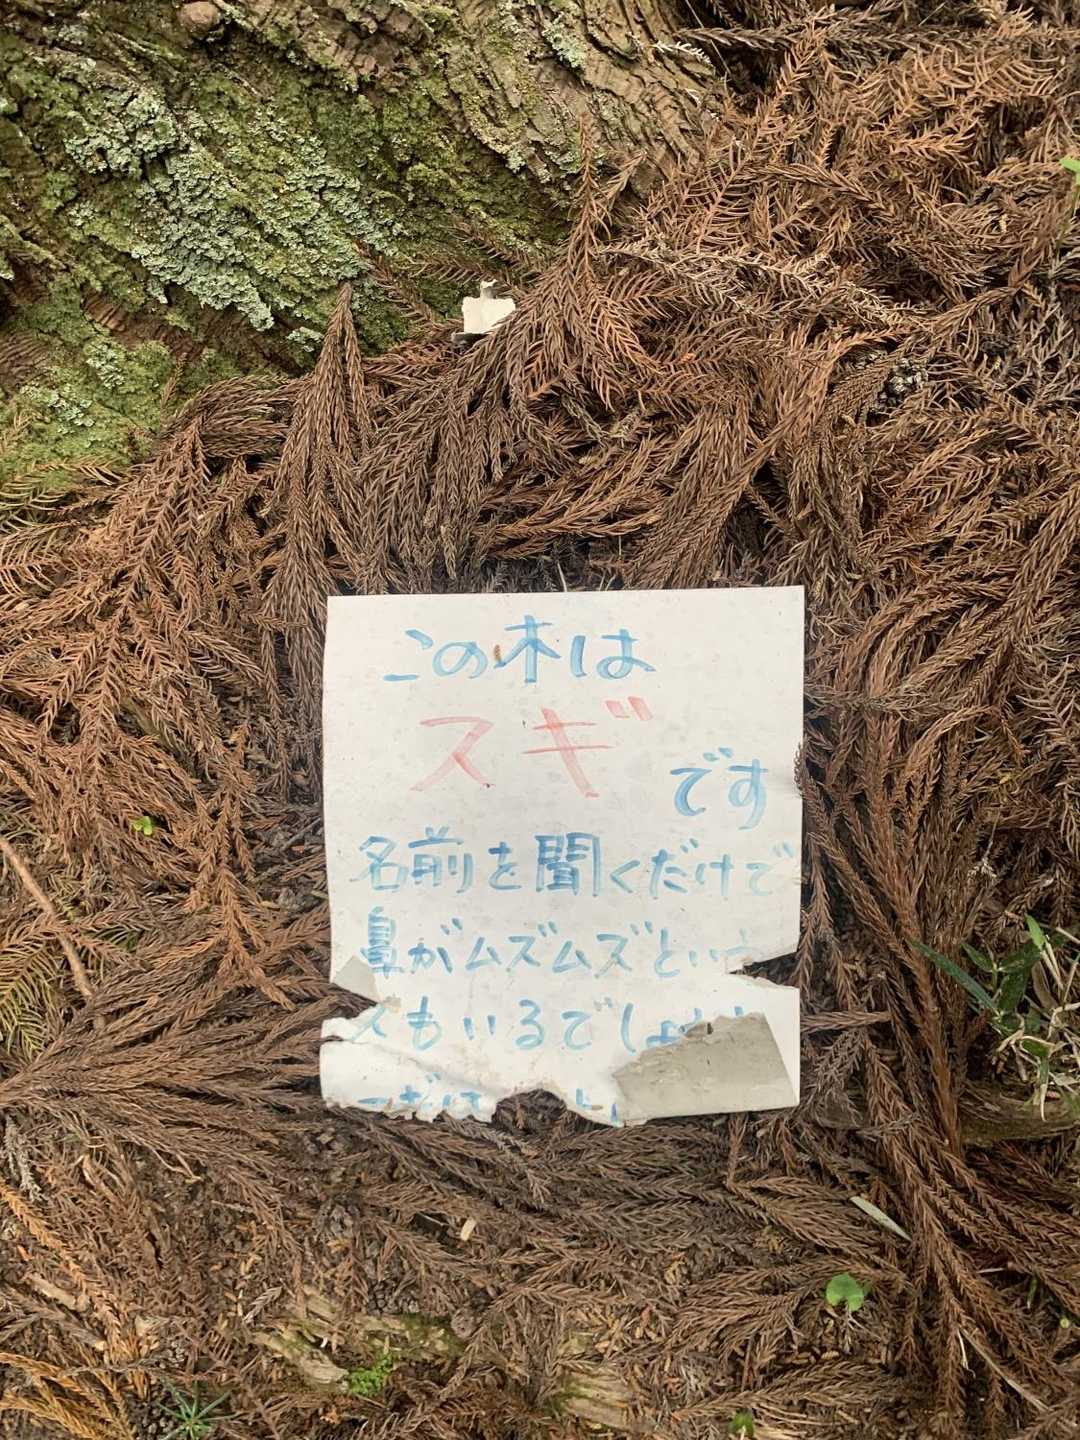 この木は
スギ
です
名前を聞くだけで
鼻がムズムズという
人もいるでしょう